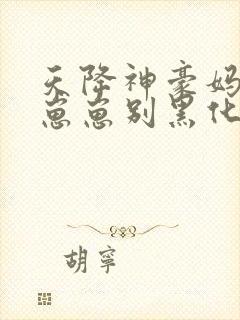 天降神豪妈
崽崽别黑化
胡寧